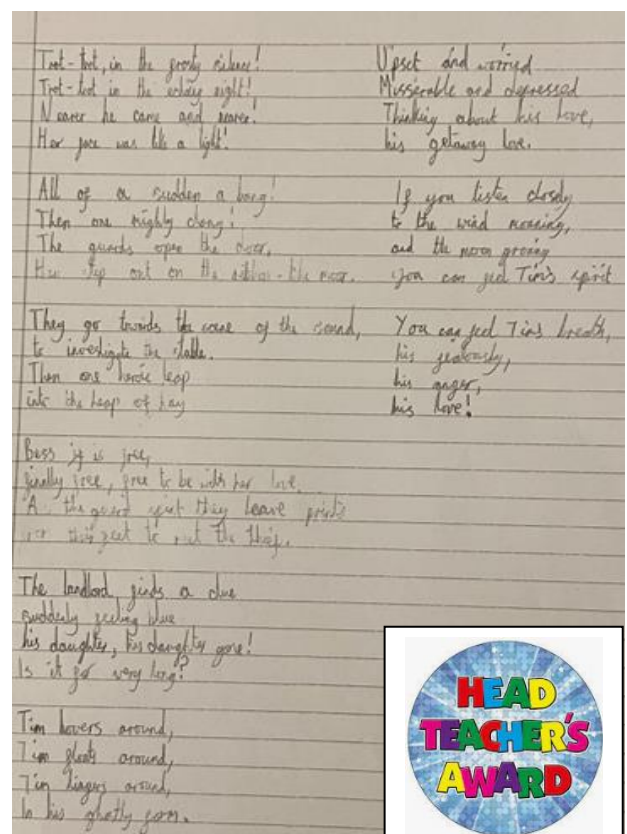 Trot-trot, in the frosty silence!
Trot-trot in the echoing night!
Nearer he came and nearer!
Her face was like a light!
All of a sudden a bang!
Then one mighty clang!
The guards open the door,
step out on the the moor.
They go towards the of the sound,
to investigate the stable.
Then one heroic leap
into the heap of hay
Bess is free,
finally free, free to be with her love.
the guard they leave prints
feet to the thief.
The landlord finds a clue
suddenly feeling blue
his daughter, his daughter gone!
Is it for very long?
Tim hovers around,
Tim floats around,
Tim lingers around,
In his ghostly form.
Upset and worried
Misserable and depressed
Thinking about his love,
his getaway love.
If you listen closely
to the wind moaning,
and the moon
you can feel Tim's spirit
You can feel Tims breath,
his jealously,
his anger,
his love!
HEAD
TEACHER'S
AWARD